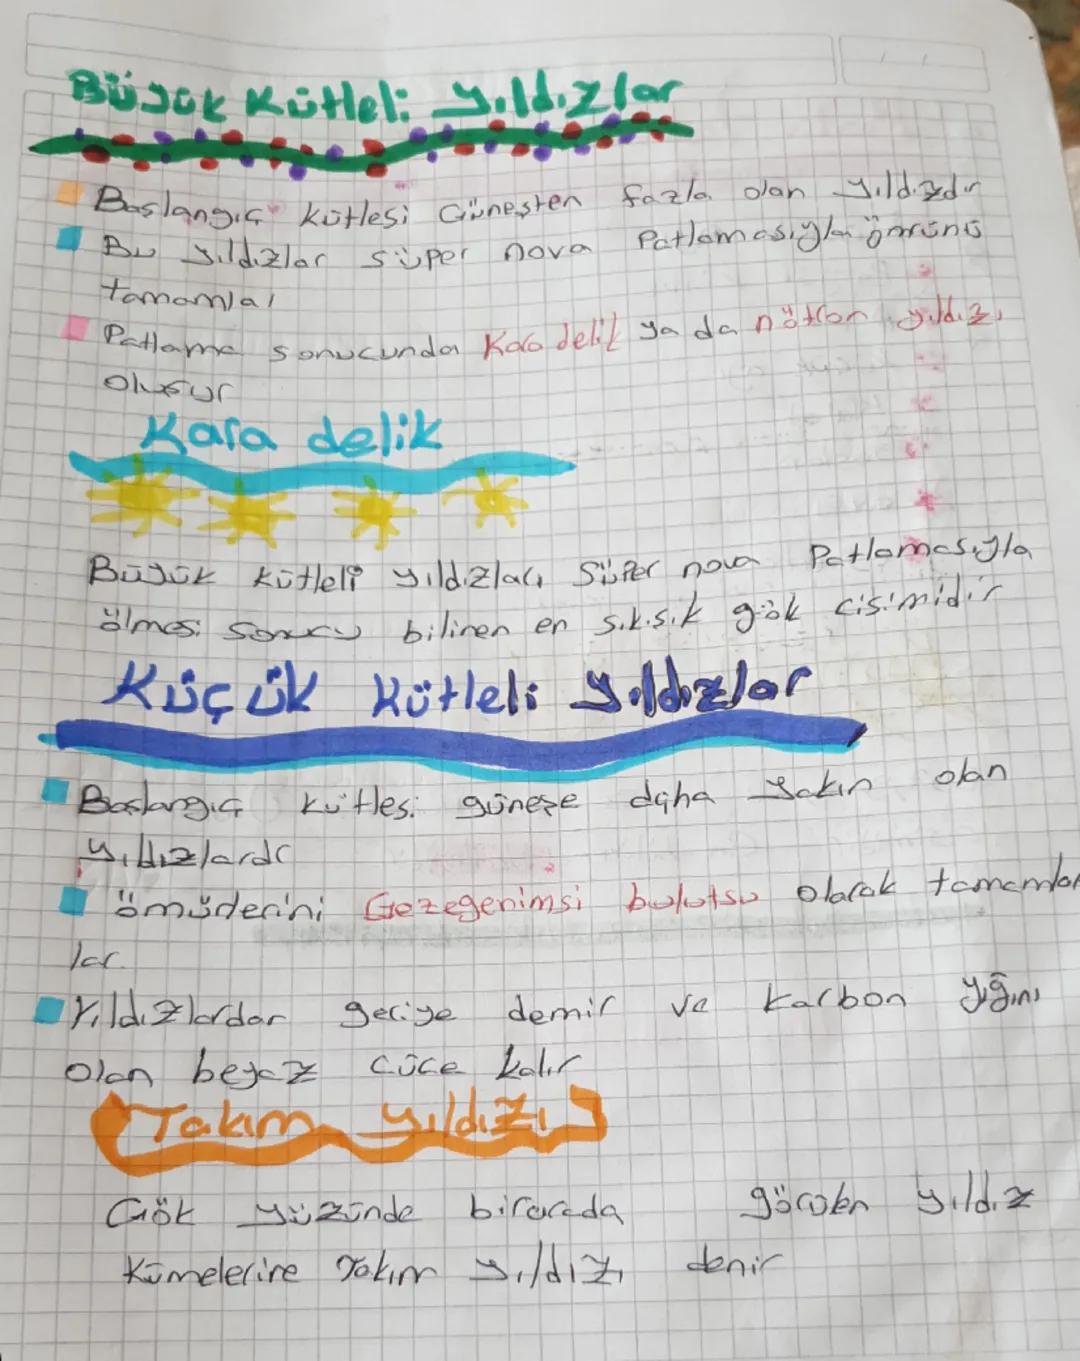 Büyük Kütleli Yıldızlar
Başlangıç kütlesi Güneşten fazla olan yıldızdır
Bu yıldızlar süper nova Patlamasıyla ömrünü
tamamlar
Patlama sonucunda Kara delik ya da nötron yıldızı
oluşur
Kara delik
Büyük kütleli yıldızları Süper nova Patlamasıyla
ölmesi sonucu bilinen en sıkışık gök cisimidir
Küçük Kütleli Yıldızlar
Başlangıç kütlesi güneşe daha yakın olan
yıldızlardr
ömürlerini Gezegenimsi bulutsu olarak tamamlar
lar.
Yıldızlardan geriye demir ve karbon yığını
olan beyaz cüce kalır
Takım yıldızı
Gök yüzünde birarada görülen yıldız
Kümelerine Takım yıldızı denir